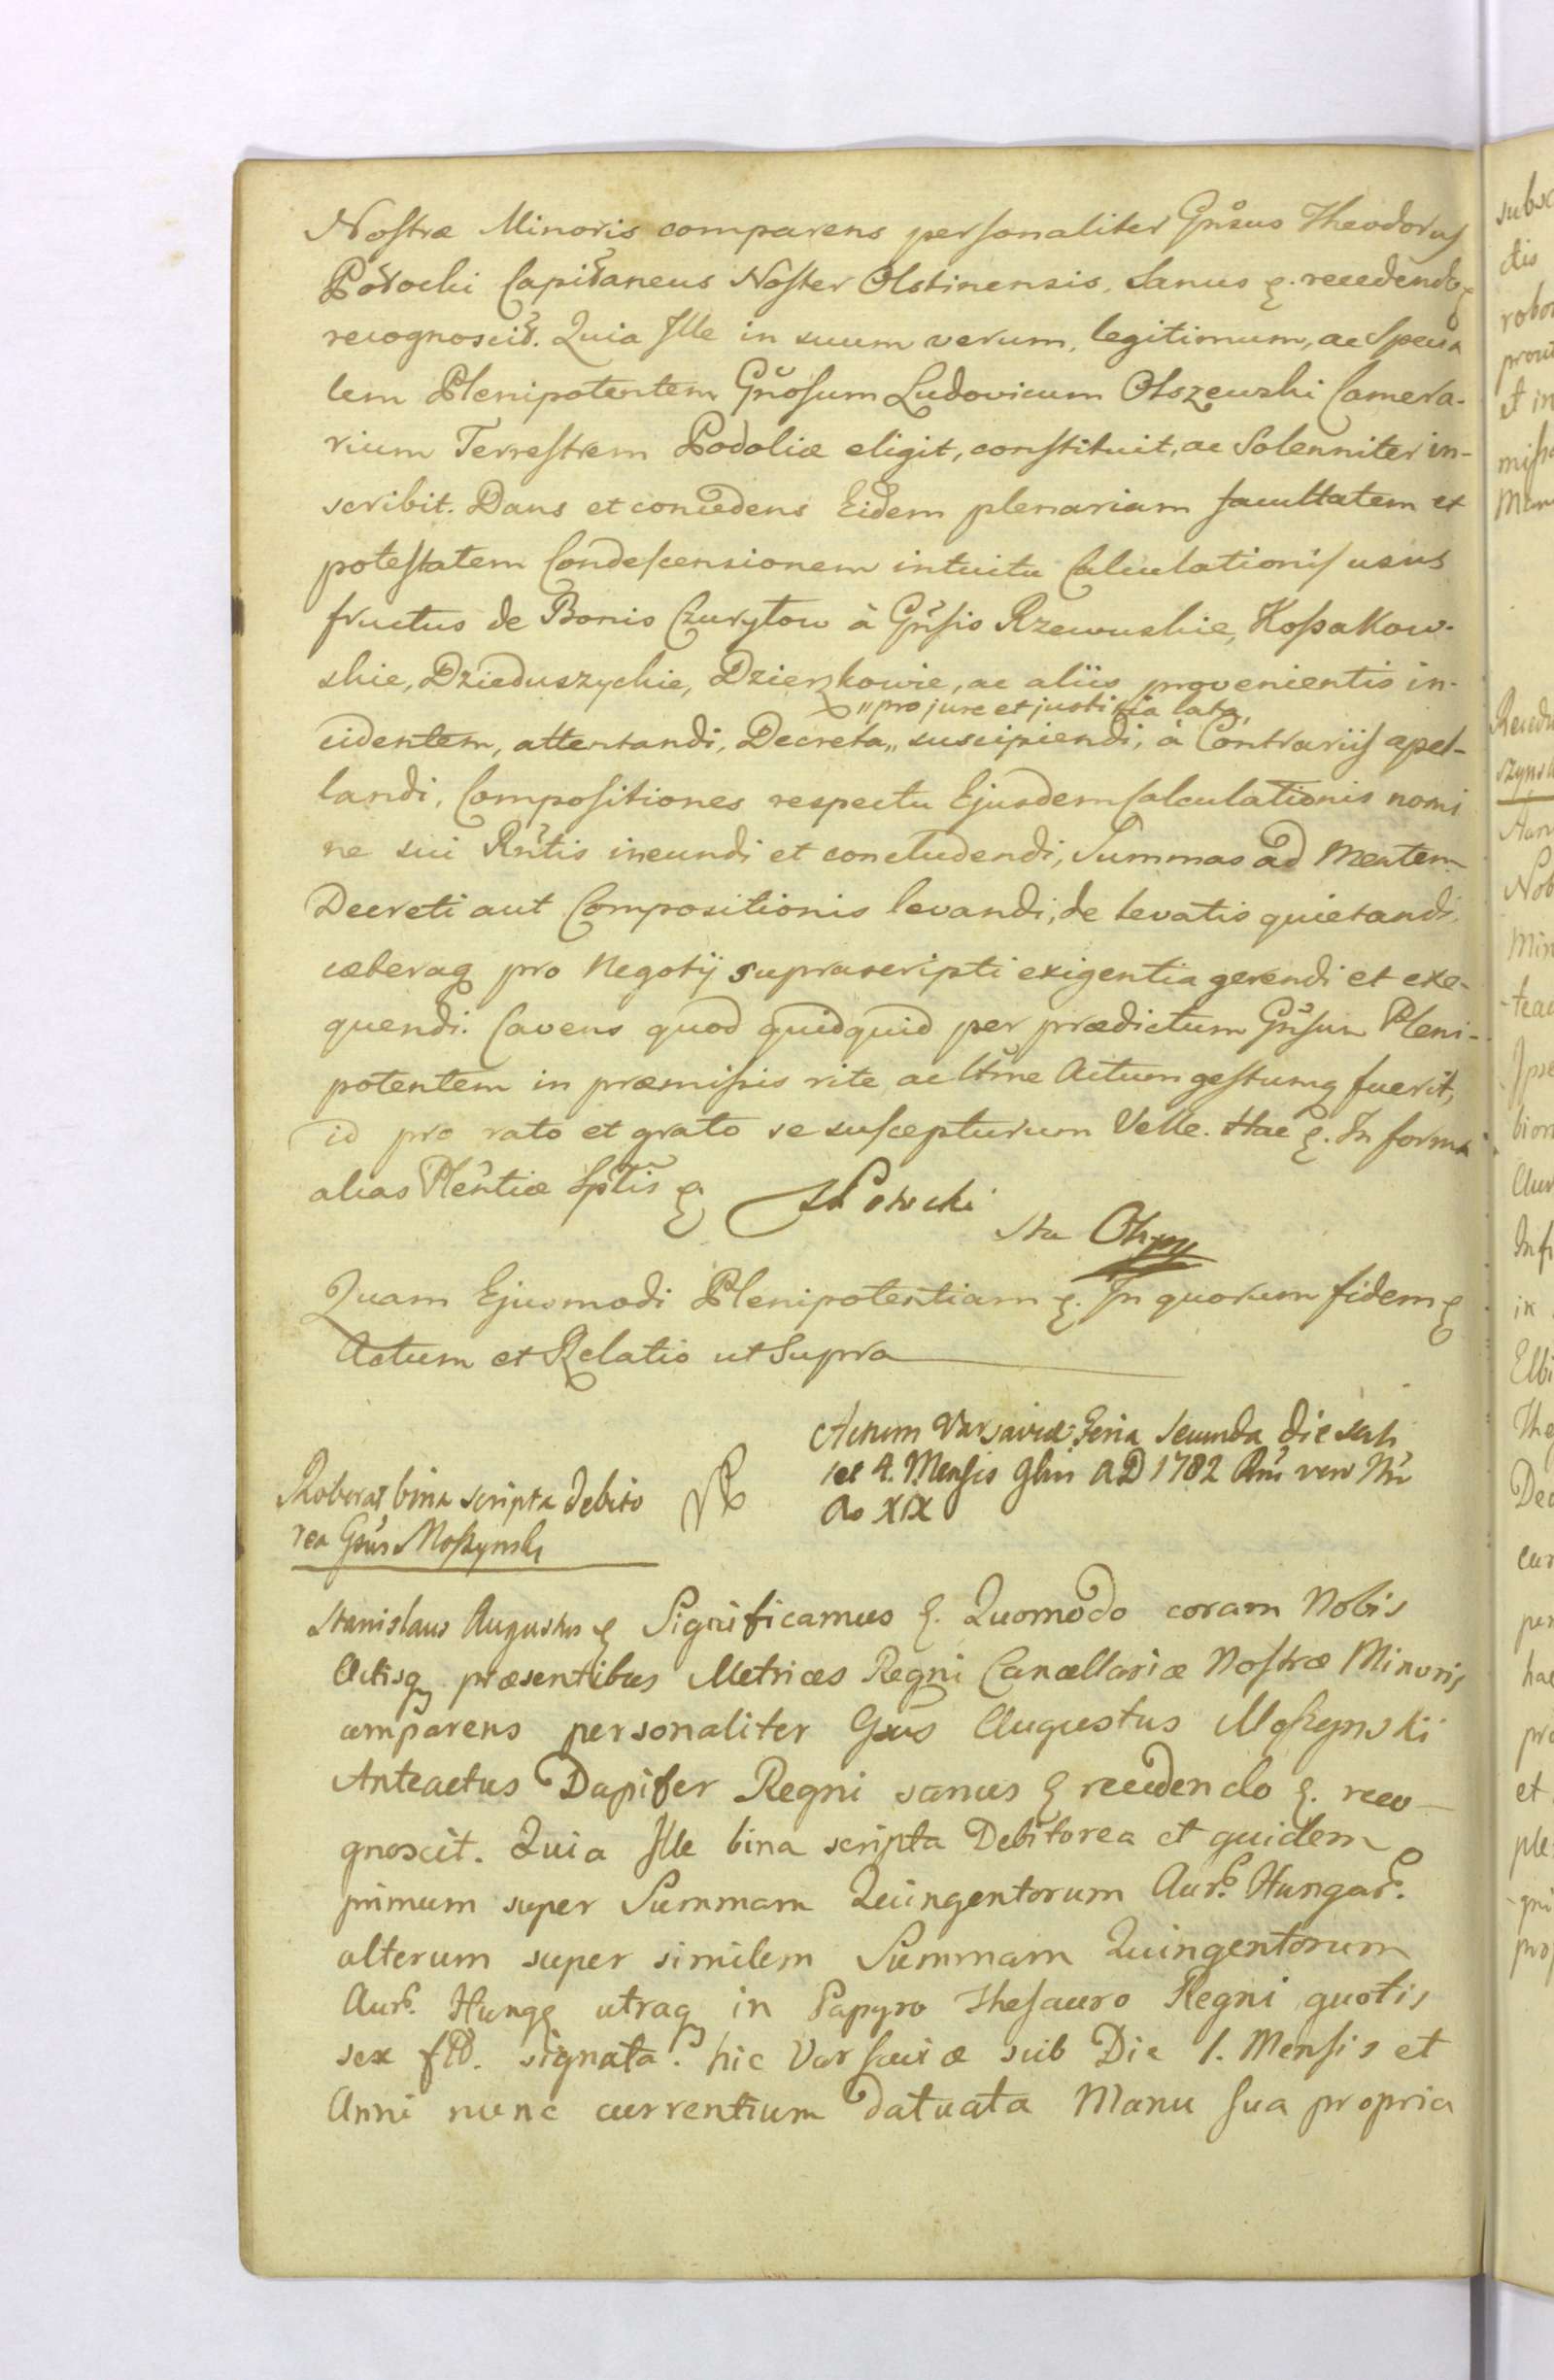 Nostræ Minoris comparens personaliter Gñsus Theodorus
Potocki Capitaneus Noster Olstinensis, Sanus &. recedendo &
recognoscit. Quia Ille in suum verum, legitimum, ac Specia
lem Plenipotentem Gñosum Ludovicum Olszewski Camera-
rium Terrestrem Podoliæ eligit, constituit, ac Solenniter in-
scribit. Dans et concedens Eidem plenariam facultatem et
potestatem Condescensionem intuitu Calculationis usus
fructus de Bonis Czurytow à Gñsis Rzewuskie, Kossakow-
skie, Dzieduszyckie, Dzierzkowie, ac aliis provenientis in-
"pro jure et justitia lata,
cidentem, attentandi, Decreta,, suscipiendi, à Contrariis apel-
landi, Compositiones respectu Ejusdem Calculationis nomi
ne sui Rñtis ineundi et concludendi, Summas ad Mentem
Decreti aut Compositionis levandi, de levatis quietandi,
cæteraq pro Negotij suprascripti exigentia gerendi et exe-
quendi. Cavens quod quidquid per prædictum Gñsum Pleni-
potentem in præmissis rite ac ltme Actum gestumq fuerit,
id pro rato et grato se suscepturum Velle. Hac &. In forma
alias Plentiæ Sptis &
Potocki
Quam Ejusmodi Plenipotentiam &. In quorum fidem &
Actum et Relatio ut Supra
Actum Varsaviæ Feria Secunda die scili
cet 4. Mensis 9bri AD 1782 Rñi vero Nri
Ao XIX
Roborat bina scripta debito
rea Gsus Moszynski
Stanislaus Augustus & Significamus &. Quomodo coram Nobis
Actisq præsentibus Metrices Regni Cancellariæ Nostræ Minoris
comparens personaliter Gsus Augustus Moszynskii
Anteactus Dapifer Regni sanus & recedendo &. reco-
gnoscit. Quia Ille bina scripta Debitorea et quidem
primum super Summam Quingentorum Aur. Hungar.
alterum super similem Summam Quingentorum
Aur. Hung& utraq in Papyro Thesauro Regni quotis
sex fld. signata. hic Varsaviæ sub Die 1. Mensis et
Anni nunc currentium datuata Manu sua propria